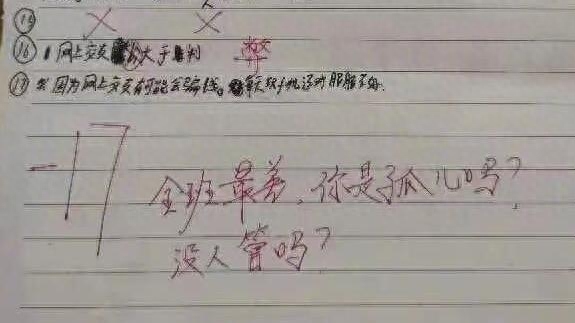 ⑮
⑯ 网上交友 大于 判 弊
⑰ 因为网上交友有可能会骗钱。 玩手机还对眼睛不好.
-17
全班最差,你是孤儿吗?
没人管吗?